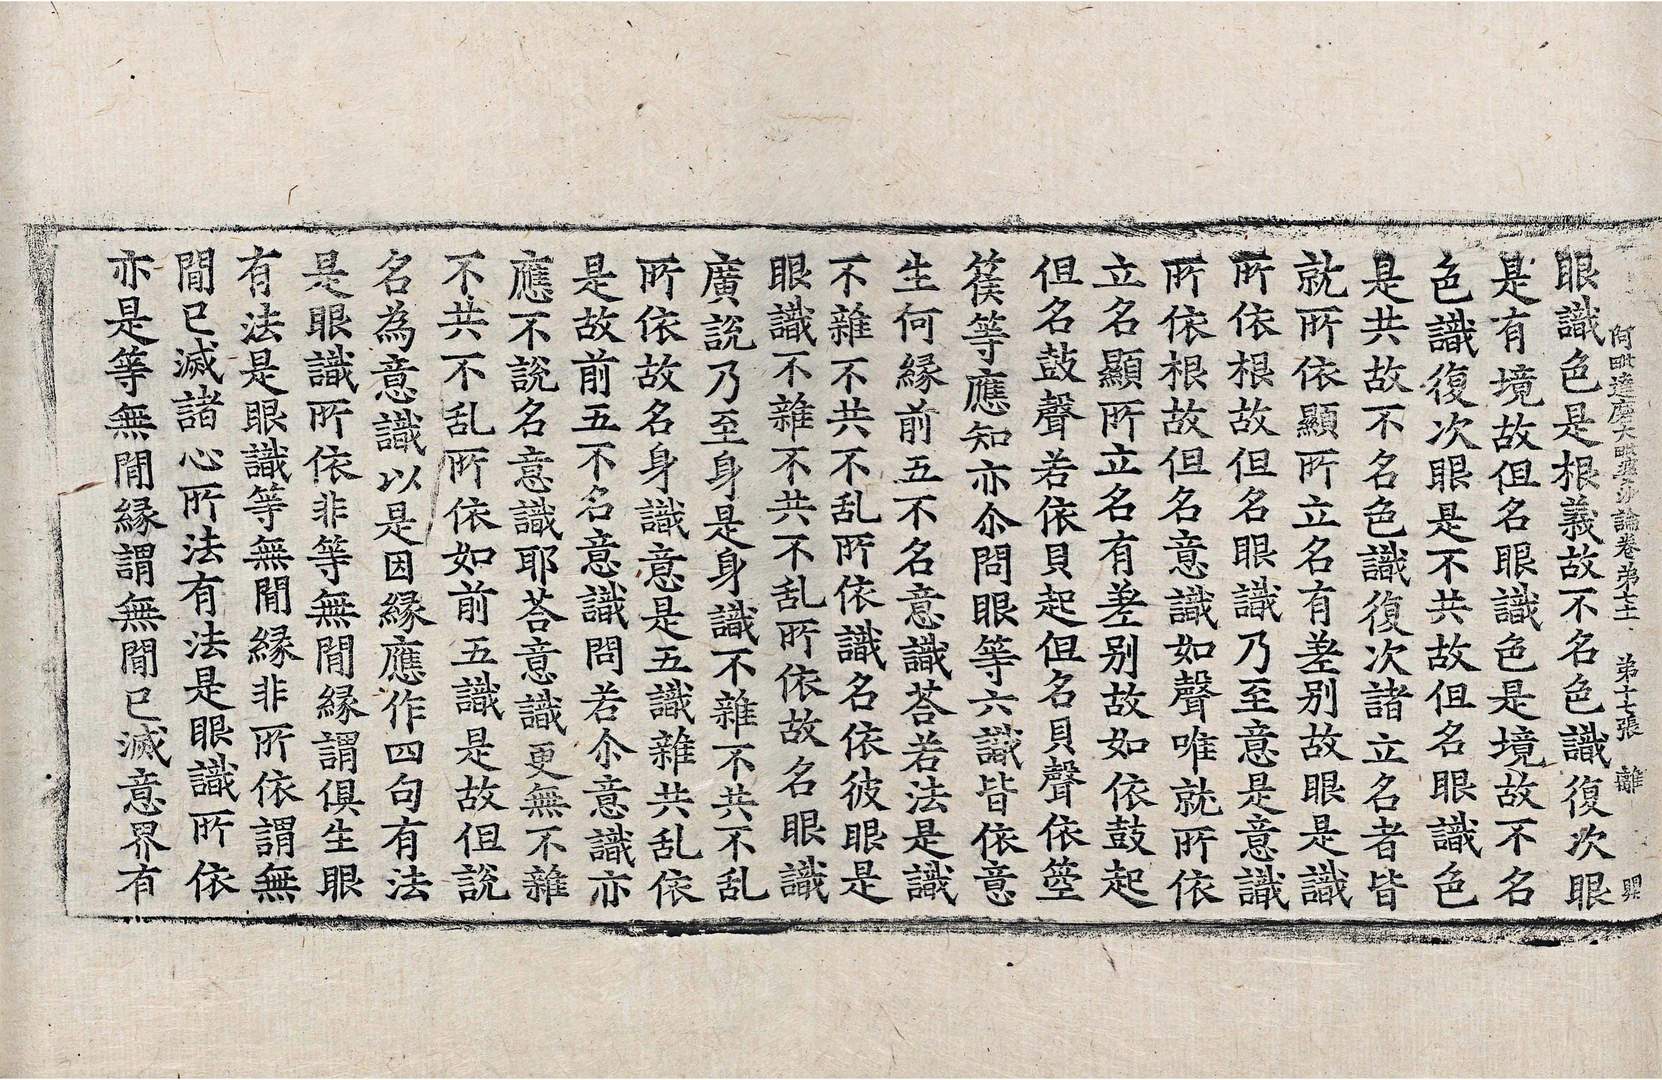 阿毗達磨大毗婆沙論卷第七十一 弟十七張 離 興
眼識色是根義故不名色識復次眼
是有境故但名眼識色是境故不名
色識復次眼是不共故但名眼識色
是共故不名色識復次諸立名者皆
就所依顯所立名有差别故眼是識
所依根故但名眼識乃至意是意識
所依根故但名意識如聲唯就所依
立名顯所立名有差别故如依鼓起
但名鼓聲若依貝起但名貝聲依箜
篌等應知亦尒問眼等六識皆依意
生何緣前五不名意識荅若法是識
不雜不共不乱所依識名依彼眼是
眼識不雜不共不乱所依故名眼識
廣說乃至身是身識不雜不共不乱
所依故名身識意是五識雜共乱依
是故前五不名意識問若尒意識亦
應不說名意識耶荅意識更無不雜
不共不乱所依如前五識是故但說
名為意識以是因緣應作四句有法
是眼識所依非等無閒緣謂俱生眼
有法是眼識等無閒緣非所依謂無
閒已滅諸心所法有法是眼識所依
亦是等無閒緣謂無閒已滅意界有